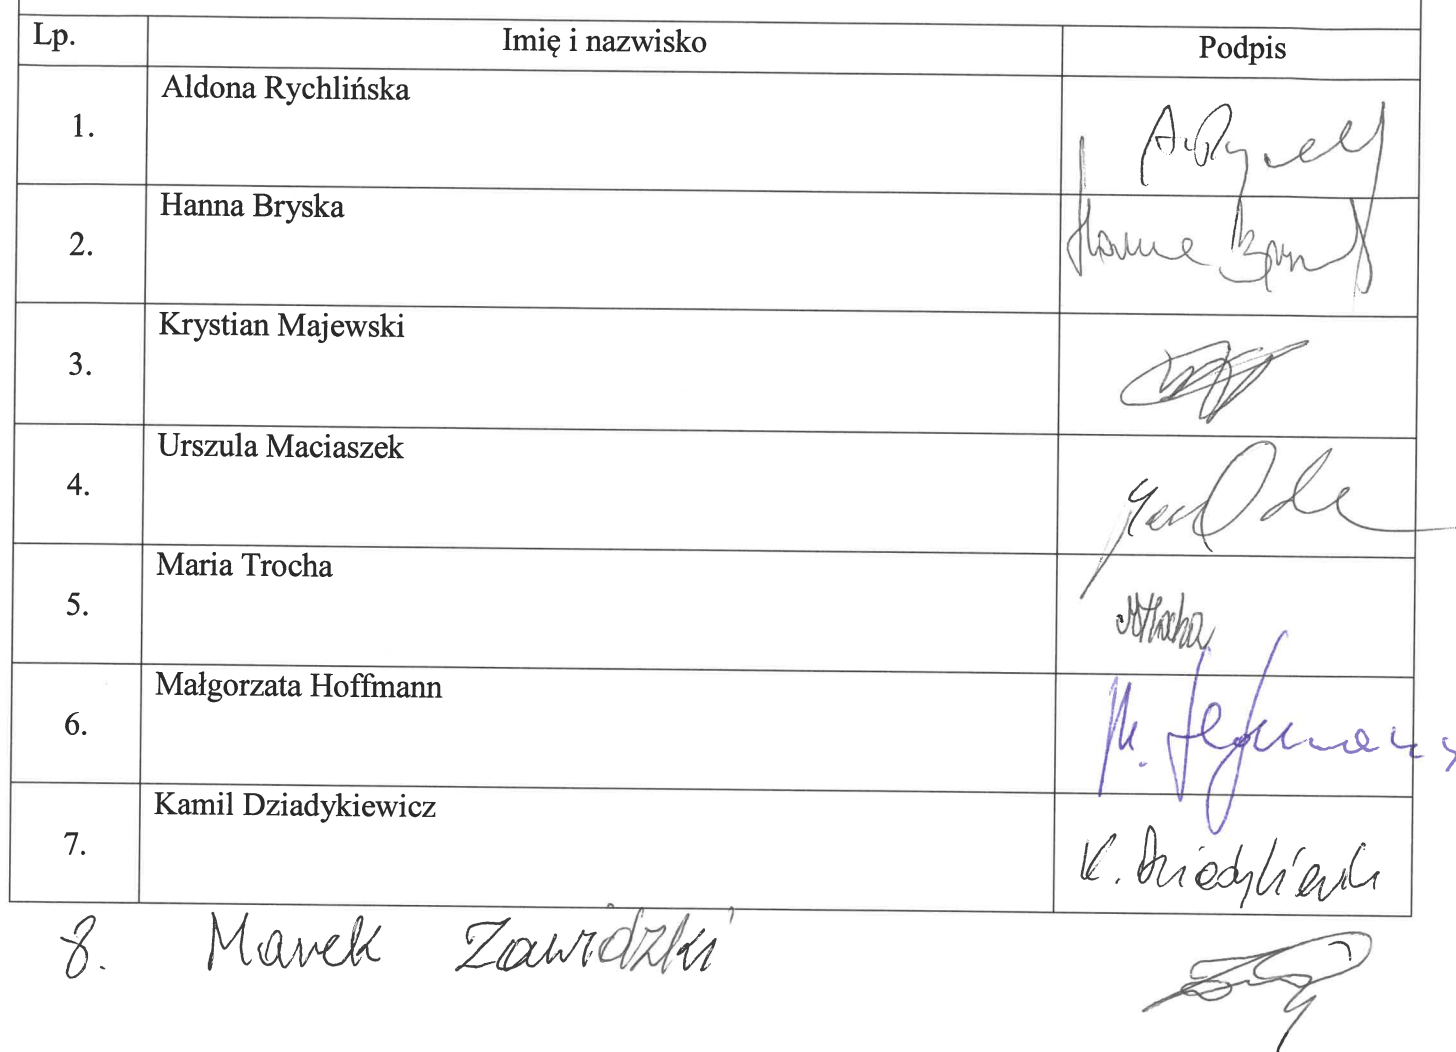 Lp. Imię i nazwisko Podpis
1. Aldona Rychlińska
2. Hanna Bryska
3. Krystian Majewski
4. Urszula Maciaszek
5. Maria Trocha
6. Małgorzata Hoffmann
7. Kamil Dziadykiewicz K. Dziadykiewicz
8. Marek Zawidzki